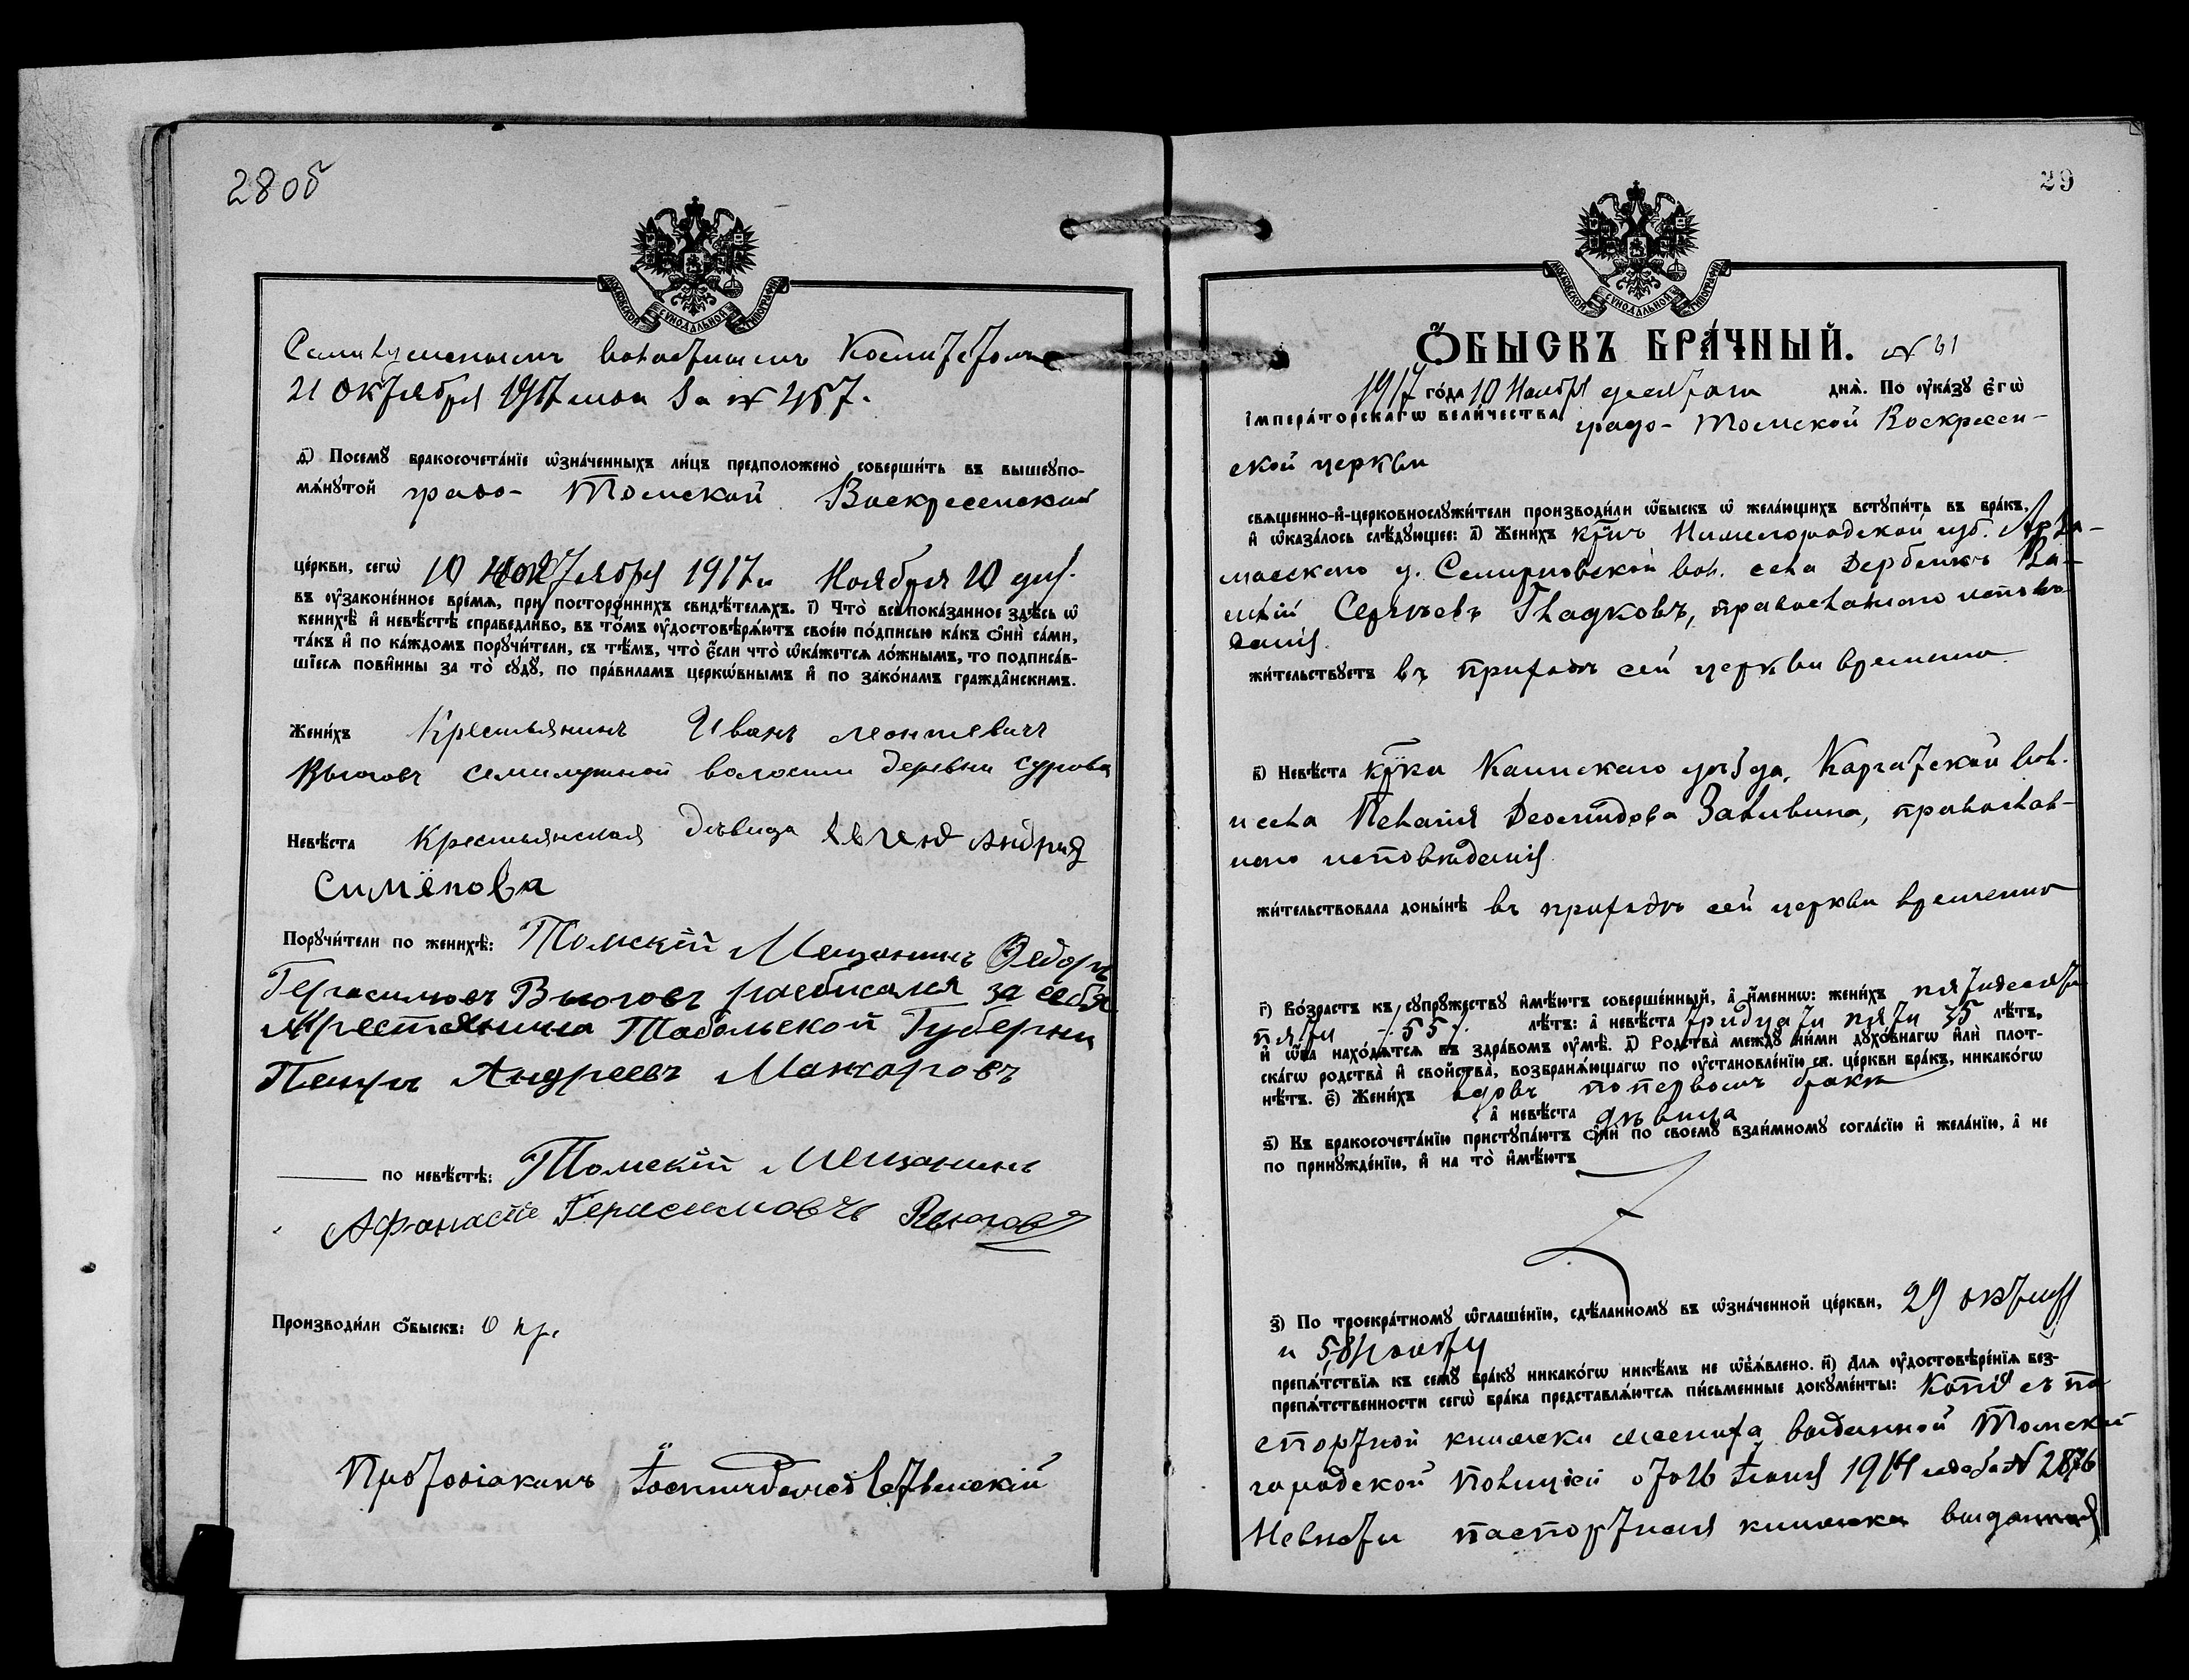 28 об
МОСКОВСКОЙ СѴНОДАЛЬНОЙ ТИПОГРАФІИ
Семилужснымъ волостнымъ Комитетомъ
21 Октября 1917 года за № 457.
д҃) Посемꙋ бракосочета́нїе ѡ҆зна́ченныхъ ли́цъ предположено̀ соверши́ть въ вышеꙋпо-
мѧ́нꙋтой градо- Томской Воскресенской
це́ркви, сегѡ̀ 10 1917 г. Ноября 10 дня.
въ ᲂу҆законе́нное вре́мѧ, при посторо́ннихъ свидѣ́телѧхъ. і҃) Что̀ всѐ пока́занное здѣ́сь ѡ҆
женихѣ̀ и҆ невѣ́стѣ справедли́во, въ то́мъ ᲂу҆достовѣрѧ́ютъ свое́ю по́дписью ка́къ ѻ҆нѝ са́ми,
та́къ и҆ по ка́ждомъ порꙋчи́тели, съ тѣ́мъ, что̀ є҆́сли что̀ ѡ҆ка́жетсѧ ло́жнымъ, то подписа́в-
шїесѧ пови́нны за то̀ сꙋдꙋ̀, по пра́виламъ церкѡ́внымъ и҆ по зако́намъ гражда̂нскимъ.
Жени́хъ Крестьянинъ Иванъ Леонтевичъ
Вьюговъ семилужной волости деревни Сурова
Невѣ́ста Крестьянская дѣвица Андрия
Симёнова
Порꙋчи́тели по женихѣ̀: Томскій Мещанинъ Федоръ
Герасимовъ Вьюговъ росписался за себя
Крестянина Тобольской Губерни
Андреевъ Макаровъ
по невѣ́стѣ: Томскій Мещанинъ
Афанасіе Герасимовчъ Вьюговъ
Производи́ли ѻ҆́быскъ: О пр.
Протодіаконъ
29
МОСКОВСКОЙ СѴНОДАЛЬНОЙ ТИПОГРАФІИ
Ѻ҆́БЫСКЪ БРА́ЧНЫЙ. № 31
1917 го́да 10 Ноября десятаго днѧ̀. По ᲂу҆ка́зꙋ є҆гѡ̀
і҆мпера́торскагѡ вели́чества градо- Томской Воскресен-
ской церкви
свѧще́нно-и҆-церковнослꙋжи́тели производи́ли ѡ҆́быскъ ѡ҆ жела́ющихъ встꙋпи́ть въ бра́къ,
и҆ ѡ҆каза́лось слѣ́дꙋющее: а҃) Жени́хъ кр̃нъ Нижегородской губ. Арза-
масскаго у. Семирновской вол. села Дербенкъ Ва-
силій Сергѣевъ Гладковъ, православнаго исповѣ-
данія.
жи́тельствꙋетъ въ приходѣ сей церкви временно
в҃) Невѣ́ста кр̃ка Каинскаго уѣзда, Каргатской вол.
и села Пелагія Деомидова Заливина, православ-
наго исповѣданія
жи́тельствовала доны́нѣ въ приходѣ сей церкви временно
г҃) Во́зрастъ къ сꙋпрꙋ́жествꙋ и҆мѣ́ютъ соверше́нный, а҆ и҆́меннѡ: жени́хъ пятидесяти
пяти /55/ лѣ́тъ: а҆ невѣ́ста тридцати пяти 35 лѣ́тъ,
и҆ ѻ҆́ба нахо́дѧтсѧ въ здра́вомъ ᲂу҆мѣ̀. д҃) Родства̀ междꙋ̀ ни́ми дꙋхо́внагѡ и҆лѝ плот-
ска́гѡ родства̀ и҆ свойства̀, возбранѧ́ющагѡ по ᲂу҆становле́нїю св. це́ркви бра́къ, никако́гѡ
нѣ́тъ. є҃) Жени́хъ вдовъ по первомъ бракѣ
а҆ невѣ́ста дѣвица
ѕ҃) Къ бракосочета́нїю пристꙋпа́ютъ ѻ҆нѝ по своемꙋ̀ взаи́мномꙋ согла́сїю и҆ жела́нїю, а҆ не
по принꙋжде́нїю, и҆ на то̀ и҆мѣ́ютъ
з҃) По троекра́тномꙋ ѡ҆глаше́нїю, сдѣ́ланномꙋ въ ѡ҆зна́ченной це́ркви, 29 октября
и 5, 8 ноября
препѧ́тствїѧ къ семꙋ̀ бра́кꙋ никако́гѡ никѣ́мъ не ѡ҆б̾ѧ́влено. и҃) Длѧ ᲂу҆достовѣре́нїѧ без-
препѧ́тственности сегѡ̀ бра́ка представлѧ́ютсѧ пи́сьменные докꙋме́нты: Копія съ па
спортной книжки жениха, выданной Томской
городской Полиціей отъ 16 Іюня 1914 года за № 2876
Невѣсты паспортная книжка выданная